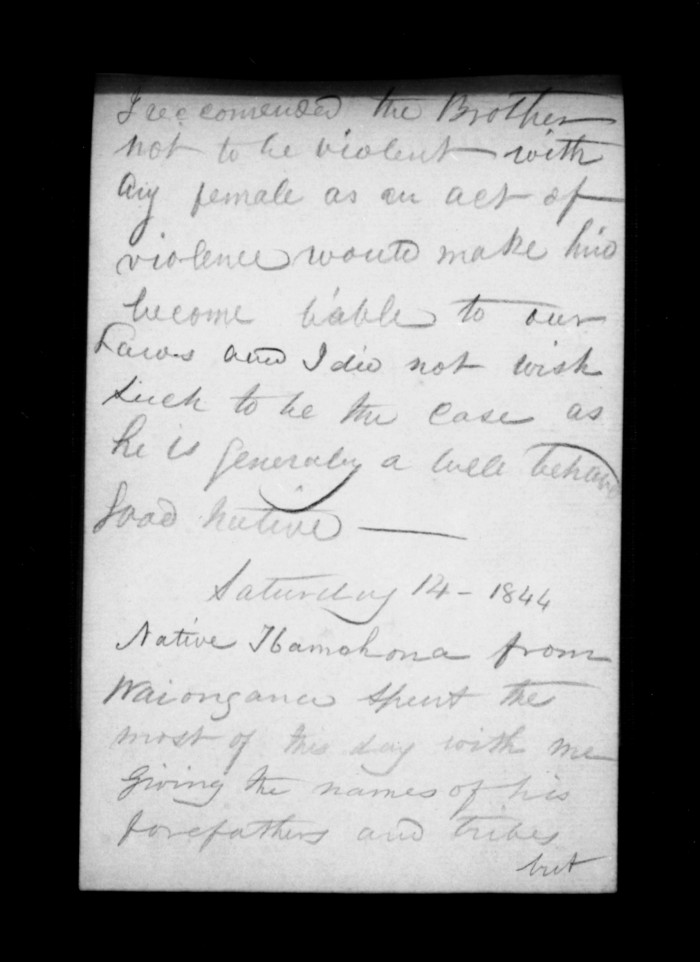 I reccomended the Brother
not to be violent with
any female as an act of
violence would make him
become liable to our
Laws and I did not wish
such to be the case as
he is generaly a well behaved
good native —
Saturday 14 - 1844
Native from
Waiongana spent the
most of this day with me
giving the names of his
forefathers and tribes
but